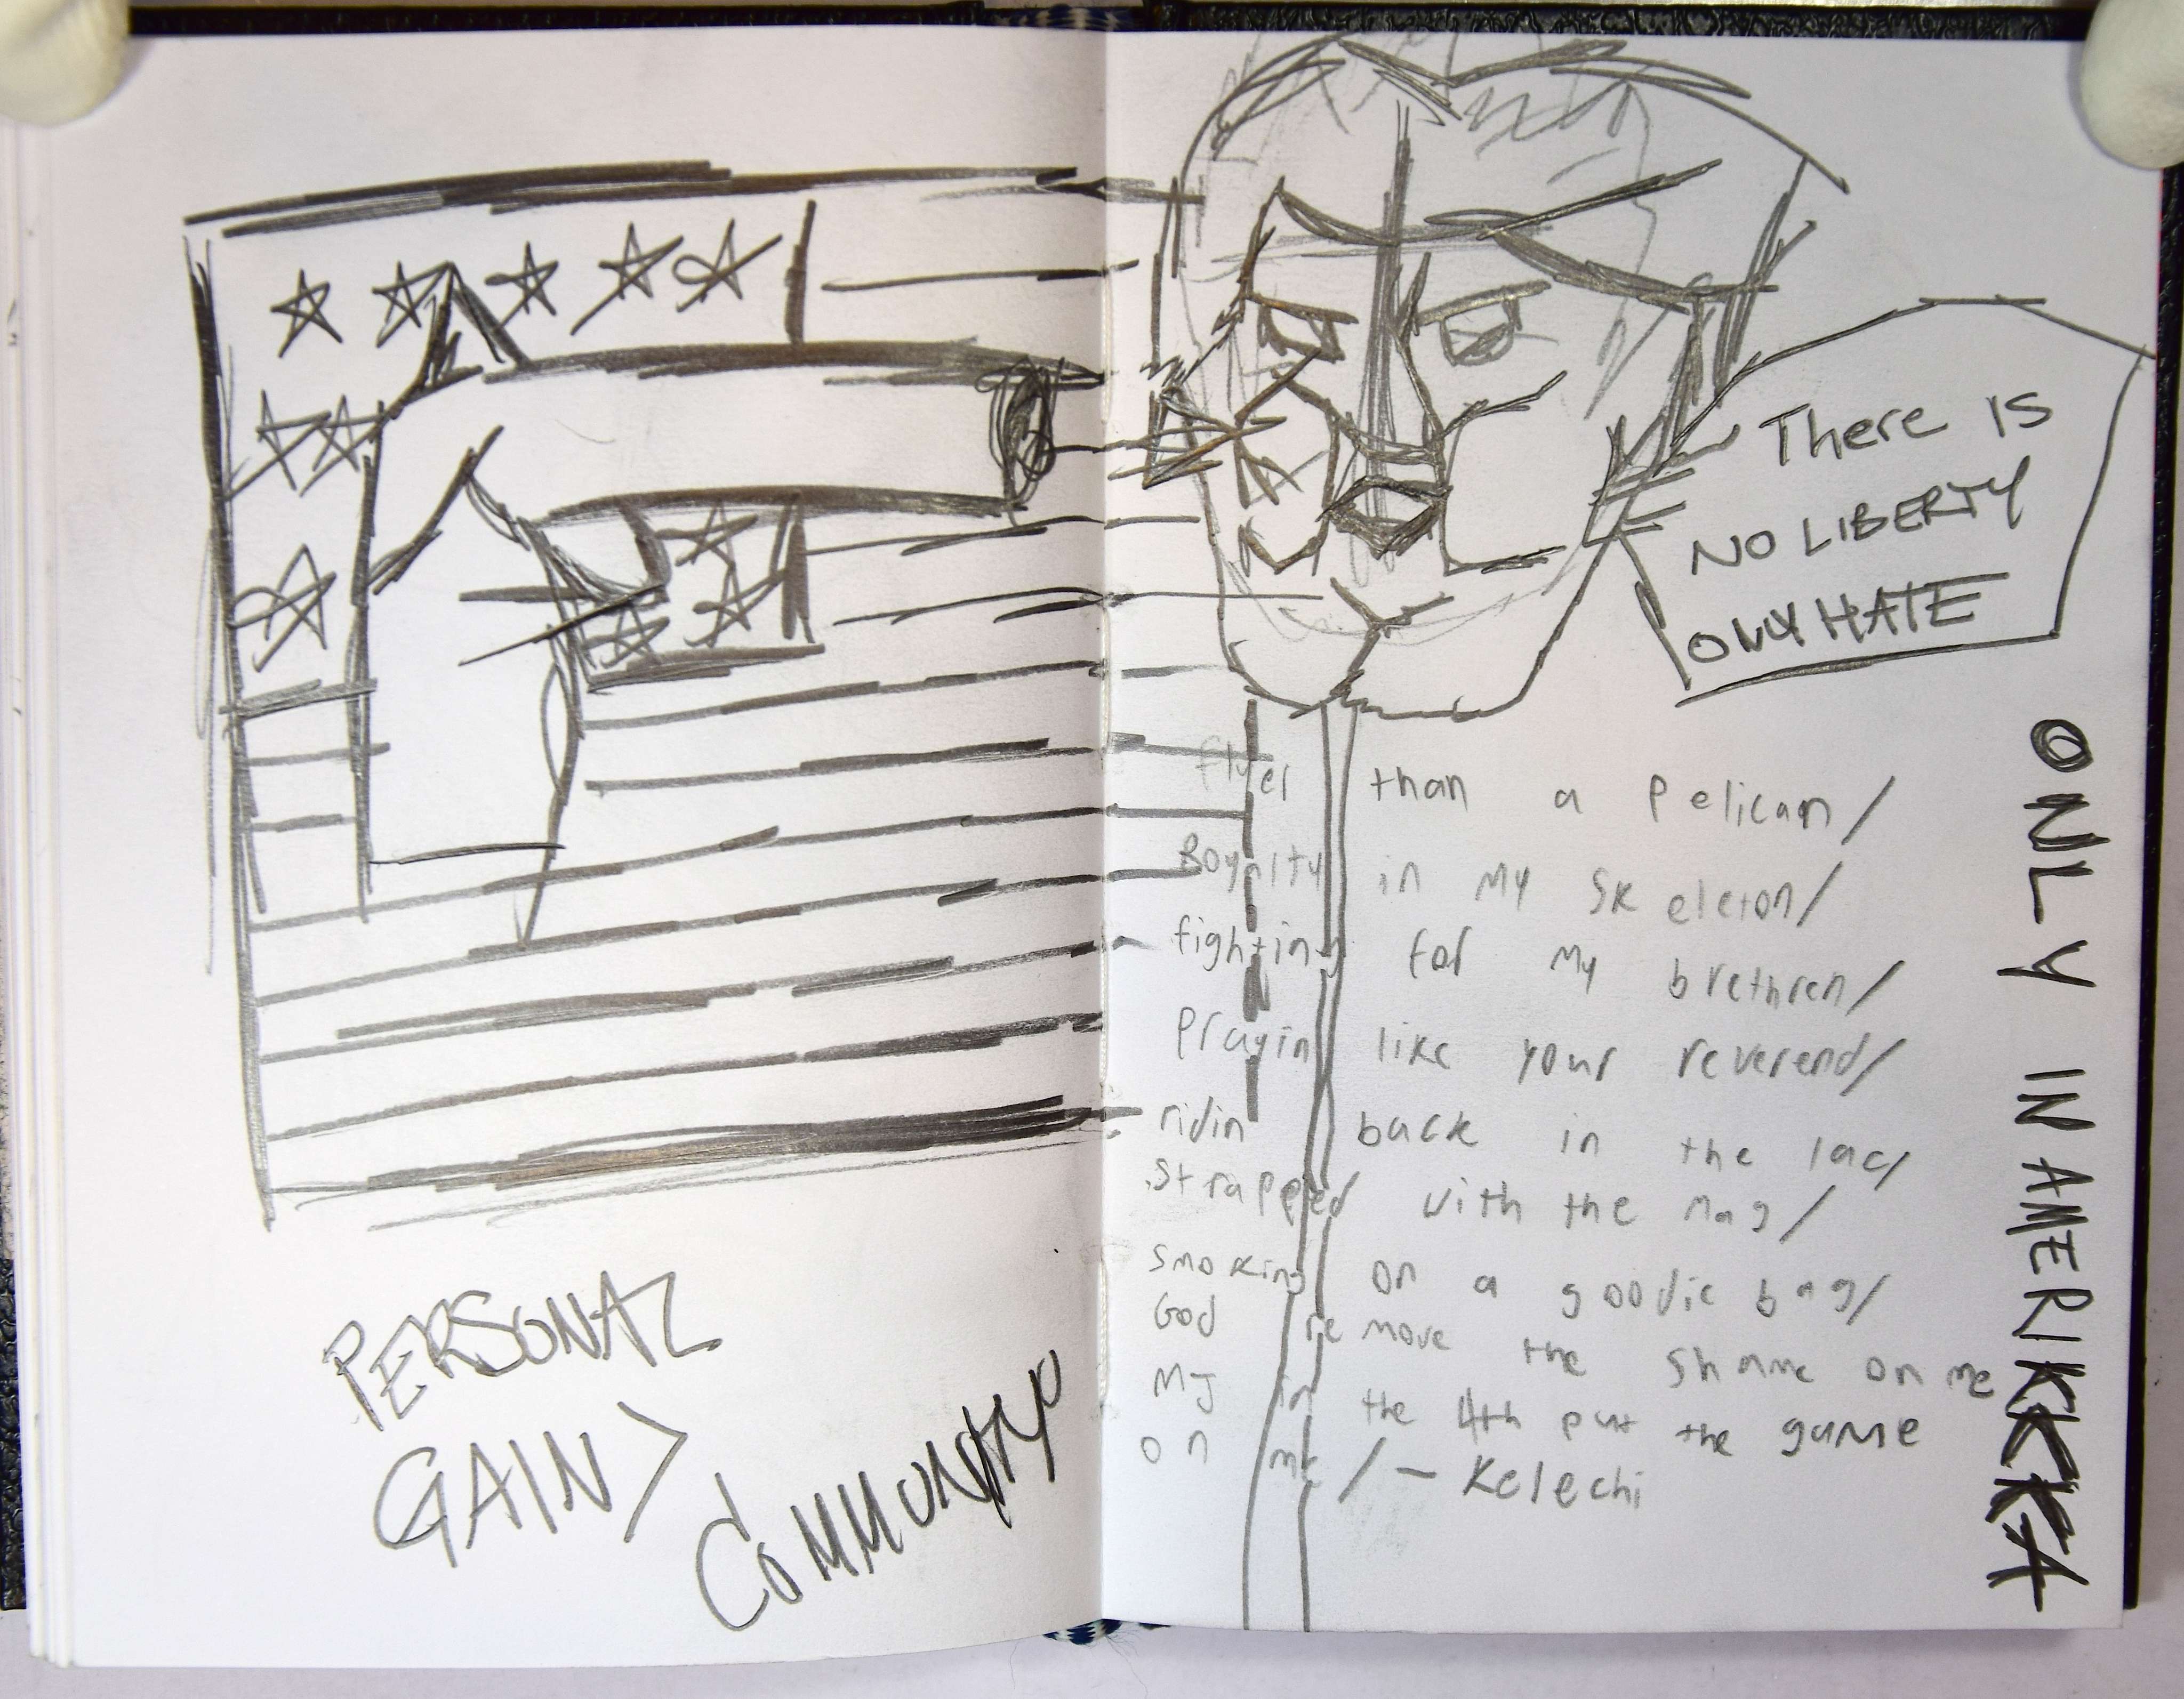 There IS
NO LIBERTY
ONLY HATE
flyer than a pelican/
Royalty in my skeleton/
fighting for my brethren/
Prayin like your reverend/
ridin back in the lac/
strapped with the mag/
smoking on a goodie bag/
God remove the shame on me
MJ in the 4th put the game
on me/ - Kelechi
ONLY IN AMERIKKKA
PERSONAL
GAIN >
COMMUNITY